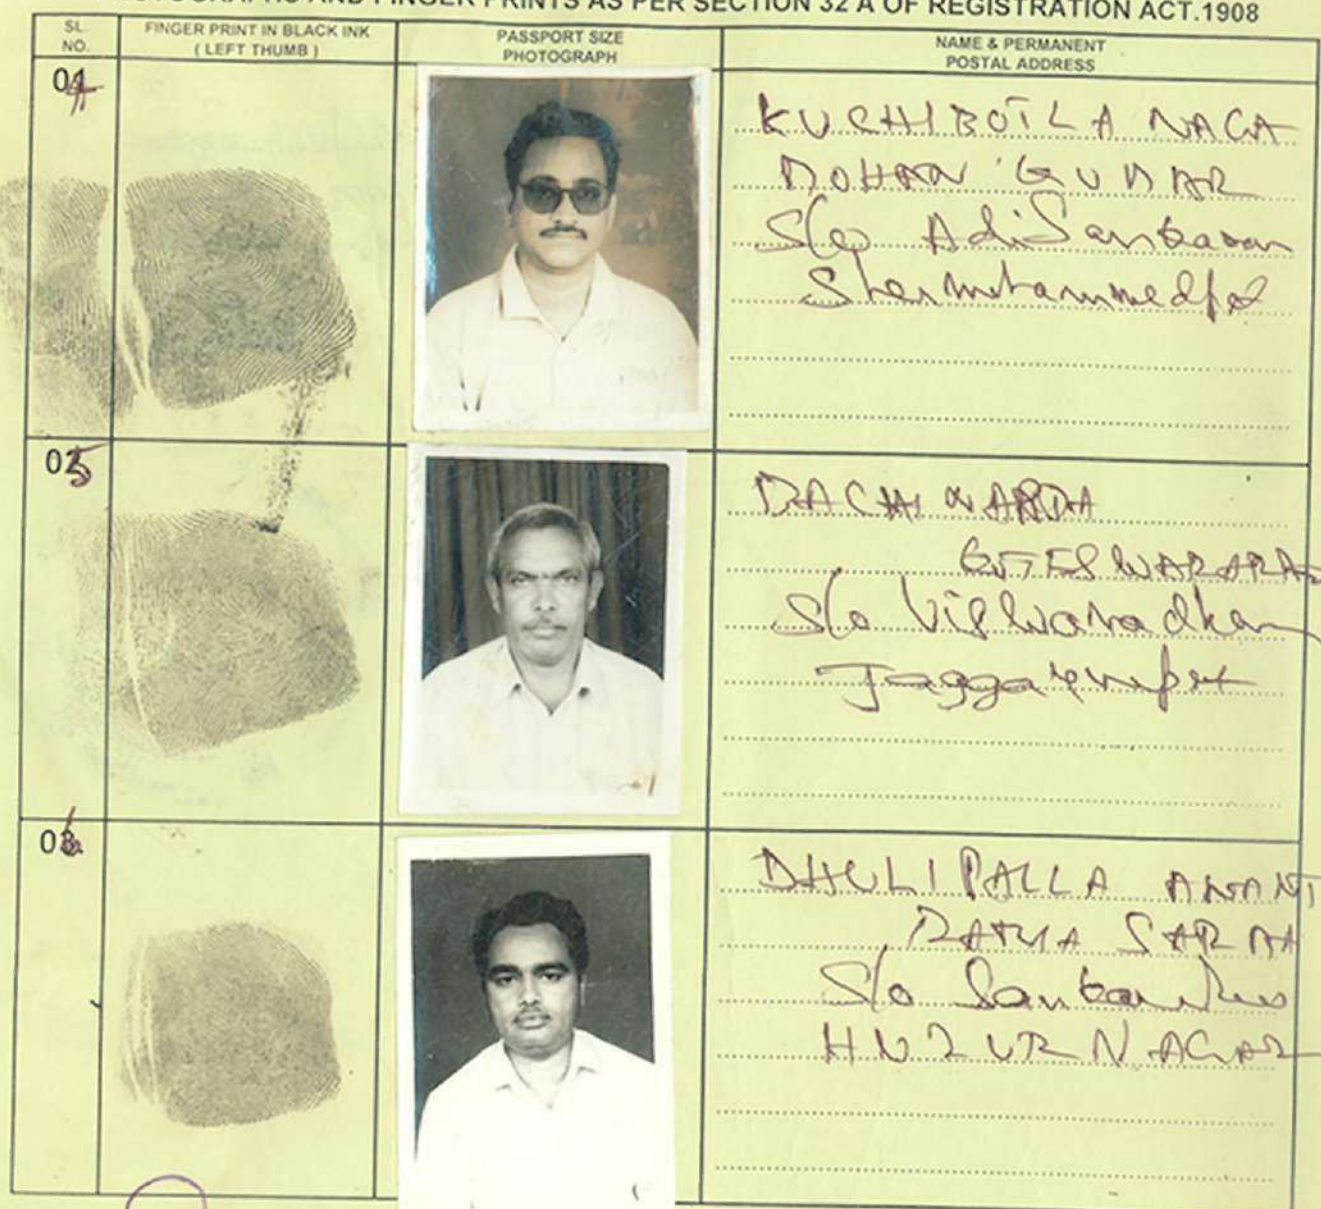 PHOTOGRAPHS AND FINGER PRINTS AS PER SECTION 32 A OF REGISTRATION ACT.1908
SL. NO.
FINGER PRINT IN BLACK INK ( LEFT THUMB )
PASSPORT SIZE PHOTOGRAPH
NAME & PERMANENT POSTAL ADDRESS
04
KUCHIBOTLA NAGA
MOHAN KUMAR
S/o Adi Sankaran
Shermohammedpet
05
DACHI
S/o Viswanadham
Jaggayyapet
06
DHULIPALLA ANANT
RAMA SARMA
S/o
HUZURNAGAR